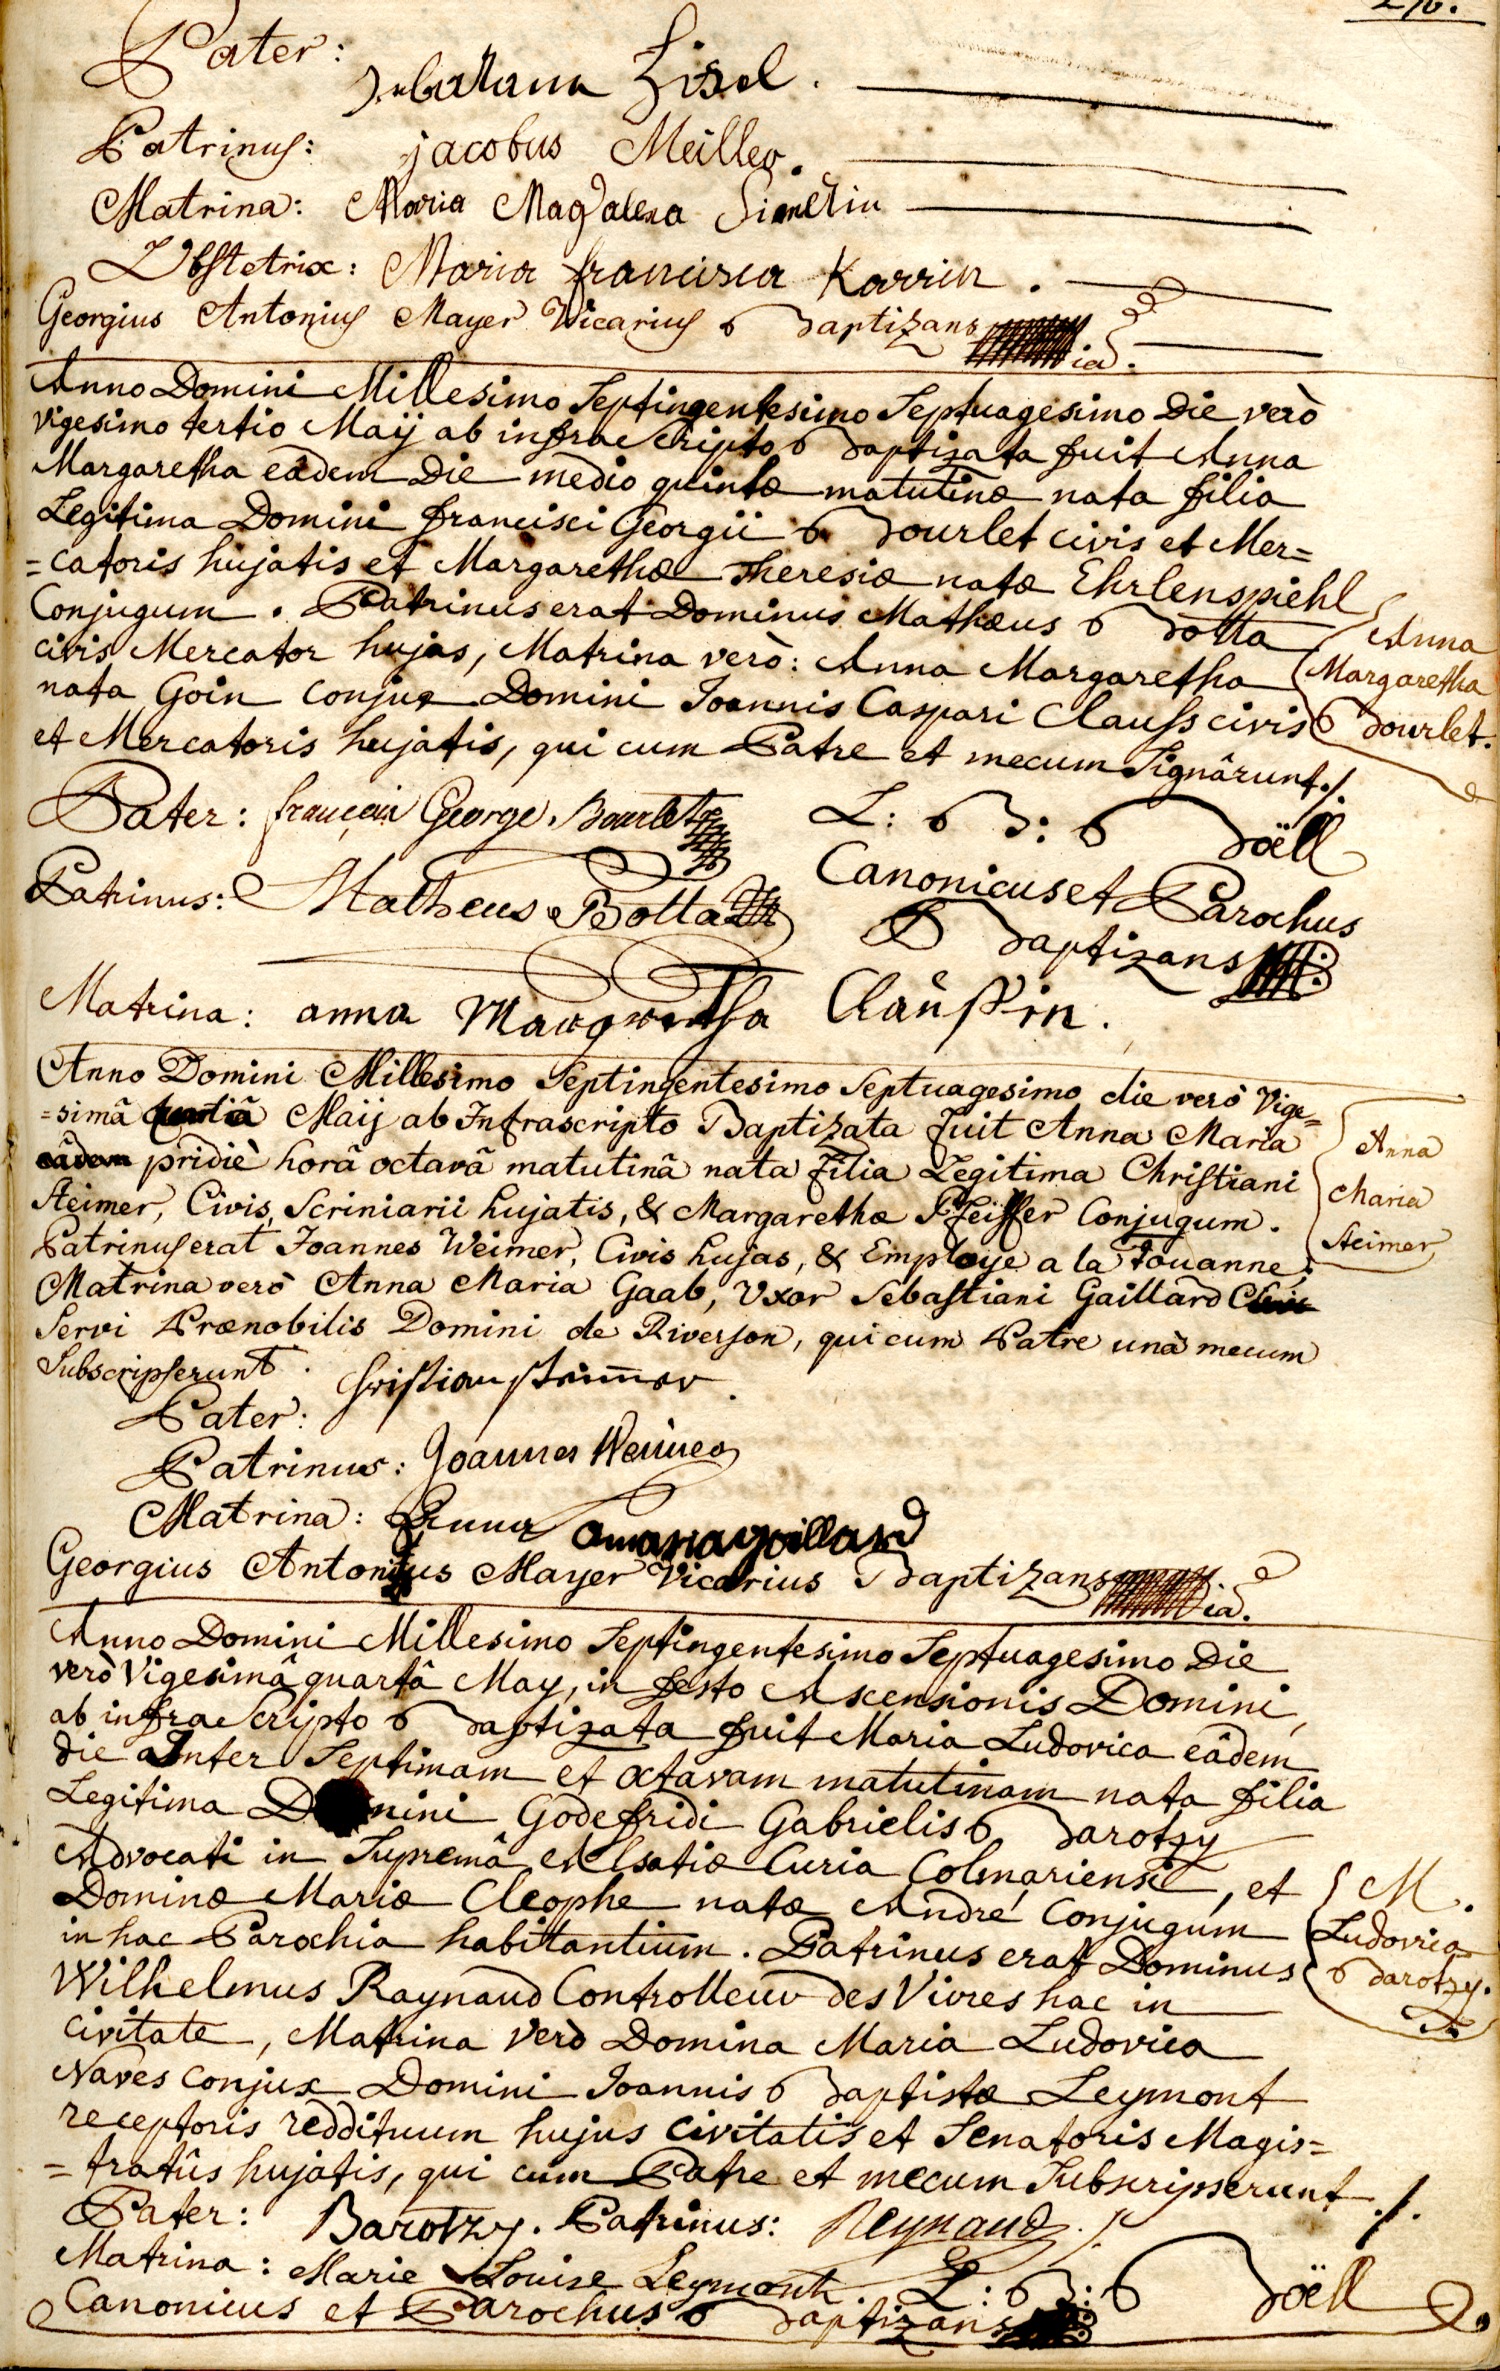 Pater: Zisel.
Patrinus: jacobus Meiller.
Matrina: Maria Magdalena
Obstetrix: Maria francisca Karrin.
Georgius Antonius Mayer Vicarius Baptizans
Anno Domini Millesimo Septingentesimo Septuagesimo Die verò
vigesimo tertio Maij ab infrascripto Baptizata fuit Anna
Margaretha eâdem Die medio quintæ matutinæ nata filia
Legitima Domini francisci Georgii Bourlet civis et Mer=
=catoris hujatis et Margarethæ Theresiæ natæ Ehrlenspiehl
Conjugum. Patrinus erat Dominus Mathæus Botta
civis Mercator hujas, Matrina verò: Anna Margaretha
nata Goin conjux Domini Joannis Caspari Clauss civis
et Mercatoris hujatis, qui cum Patre et mecum Signârunt./.
Anna
Margaretha
Bourlet.
Pater: françois George Bourlet
L: B: Böell
Canonicus et Parochus
Baptizans
Patrinus: Matheus Botta
Matrina: anna Margretha Claußin.
Anno Domini Millesimo Septingentesimo Septuagesimo die verò Vige=
=simâ Maij ab Infrascripto Baptizata fuit Anna Maria
pridiè horâ octavâ matutinâ nata filia Legitima Christiani
Steimer, Civis, Scriniarii hujatis, & Margarethæ Pfeiffer Conjugum.
Patrinus erat Joannes Weimer, Civis hujas, & Employe a la Douanne,
Matrina verò Anna Maria Gaab, Uxor Sebastiani Gaillard
Servi Prænobilis Domini de Riverson, qui cum Patre unà mecum
Subscripserunt.
Anna
Maria
Steimer
Pater:
Patrinus: Joannes Weimer
Matrina: Anna maria gaillard
Georgius Antonius Mayer Vicarius Baptizans
Anno Domini Millesimo Septingentesimo Septuagesimo Die
verò Vigesimâ quartâ May, in festo Ascensionis Domini,
ab infrascripto Baptizata fuit Maria Ludovica eâdem
die Inter Septimam et octavam matutinam nata filia
Legitima Domini Godefridi Gabrielis Barotzy
Advocati in Supremâ Alsatiæ Curia Colmariensi, et
Dominæ Mariæ Cleophe natæ André Conjugum
in hac Parochia habitantium. Patrinus erat Dominus
Wilhelmus Raynaud Controlleur des Vivres hac in
civitate, Matrina verò Domina Maria Ludovica
Naves conjux Domini Joannis Baptistæ Leymont
receptoris reddituum hujus civitatis et Senatoris Magis=
=tratûs hujatis, qui cum Patre et mecum Subscripserunt./.
M.
Ludovica
Barotzy.
Pater: Barotzy. Patrinus: Reynaud
Matrina: Marie Louise Leymont. L: B: Böell
Canonicus et Parochus Baptizans